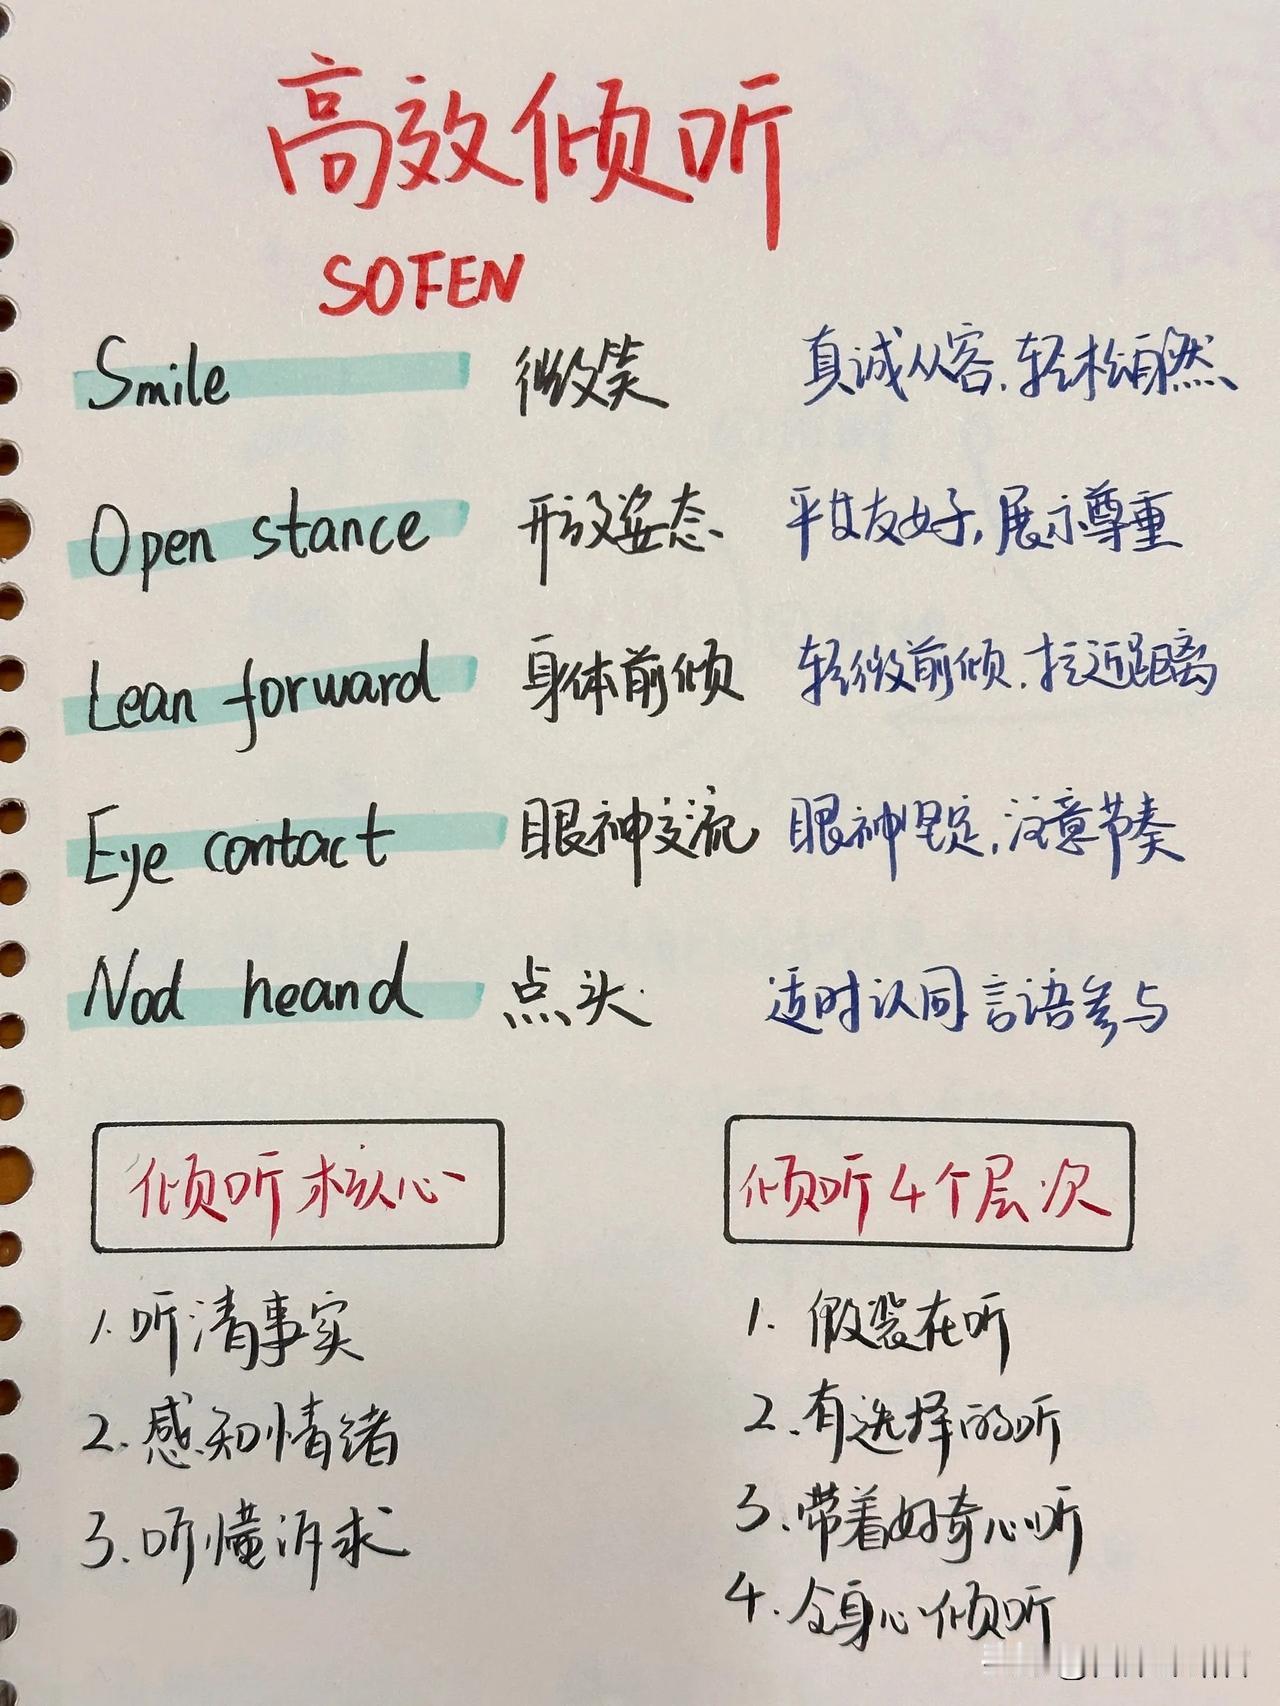 高效倾听
SOFEN
Smile 微笑 真诚从容，轻松自然
Open stance 开放姿态 平等友好，展示尊重
Lean forward 身体前倾 轻微前倾，拉近距离
Eye contact 眼神交流 眼神坚定，注意节奏
Nod heand 点头 适时认同 言语参与
倾听核心
1. 听清事实
2. 感知情绪
3. 听懂诉求
倾听4个层次
1. 假装在听
2. 有选择的听
3. 带着好奇心听
4. 全身心倾听